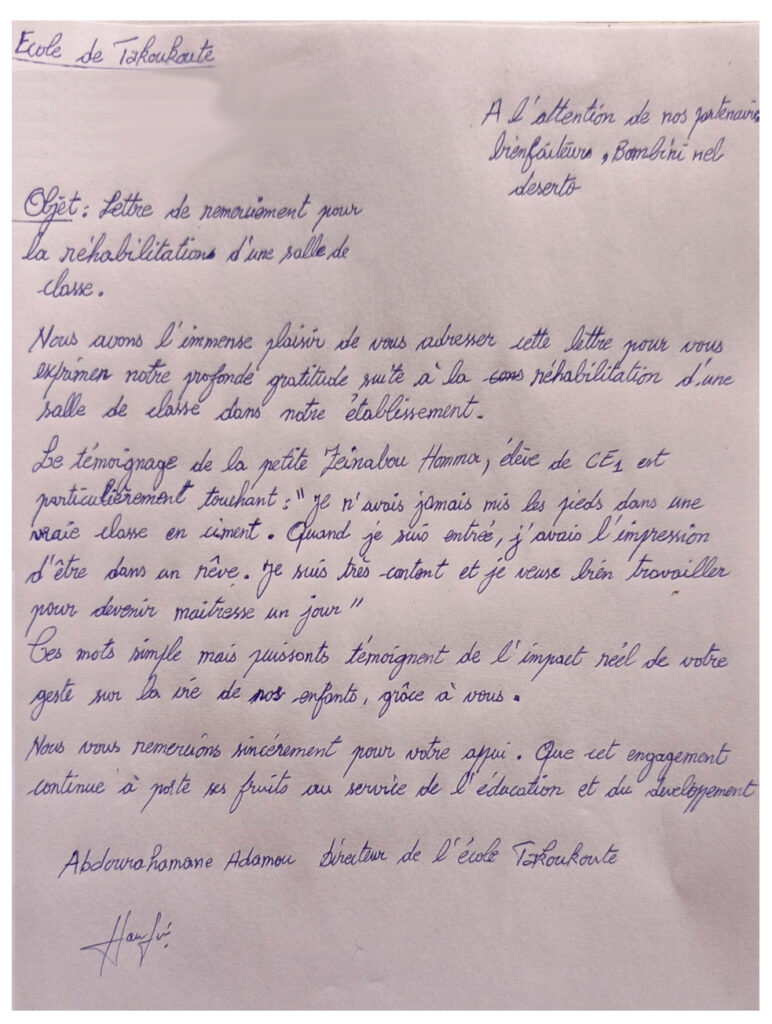 Ecole de Takoukoute
A l'attention de nos partenaire
bienfaiteurs, Bombini nel
deserto
Objet: Lettre de remerciement pour
la réhabilitations d'une salle de
classe.
Nous avons l'immense plaisir de vous adresser cette lettre pour vous
exprimer notre profonde gratitude suite à la cons réhabilitation d'une
salle de classe dans notre établissement.
Le témoignage de la petite Zeinabou Homma, élève de CE1 est
particulièrement touchant: "Je n'avais jamais mis les pieds dans une
vraie classe en ciment. Quand je suis entrée, j'avais l'impression
d'être dans un rêve. Je suis très content et je veuse bien travailler
pour devenir maitresse un jour"
Ces mots simple mais puissants témoignent de l'impact réel de votre
geste sur la vie de nos enfants, grâce à vous.
Nous vous remercions sincérement pour votre appui. Que cet engagement
continue à porté ses fruits au service de l'éducation et du developpement
Abdourahamane Adamou Directeur de l'école Takoukoute